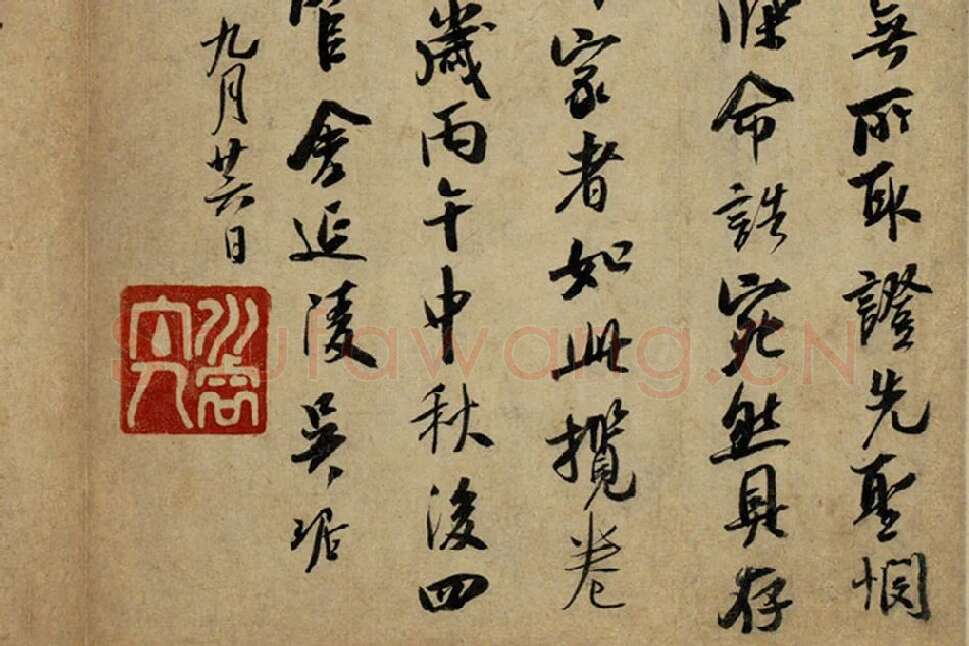 無所取證先聖憫
命誥宛然具存
家者如此攬卷
歲丙午中秋後四
舍延陵吳琚
九月廿六日
Shufawang.CN